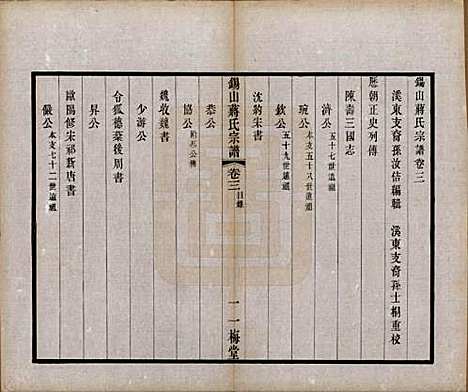 錫山蔣氏宗譜卷三
溪東支裔孫汝佶編輯　溪東支裔孫士桐重校
歷朝正史列傳
陳壽三國志
濟公 五十七世遠祖
琬公 本支五十八世遠祖
欽公 五十九世遠祖
沈約宋書
恭公
協公 附恭公傳
魏收魏書
少游公
令狐德棻後周書
昇公
歐陽修宋祁新唐書
儼公 本支七十二世遠祖
錫山蔣氏宗譜 卷三 目錄 一 一梅堂